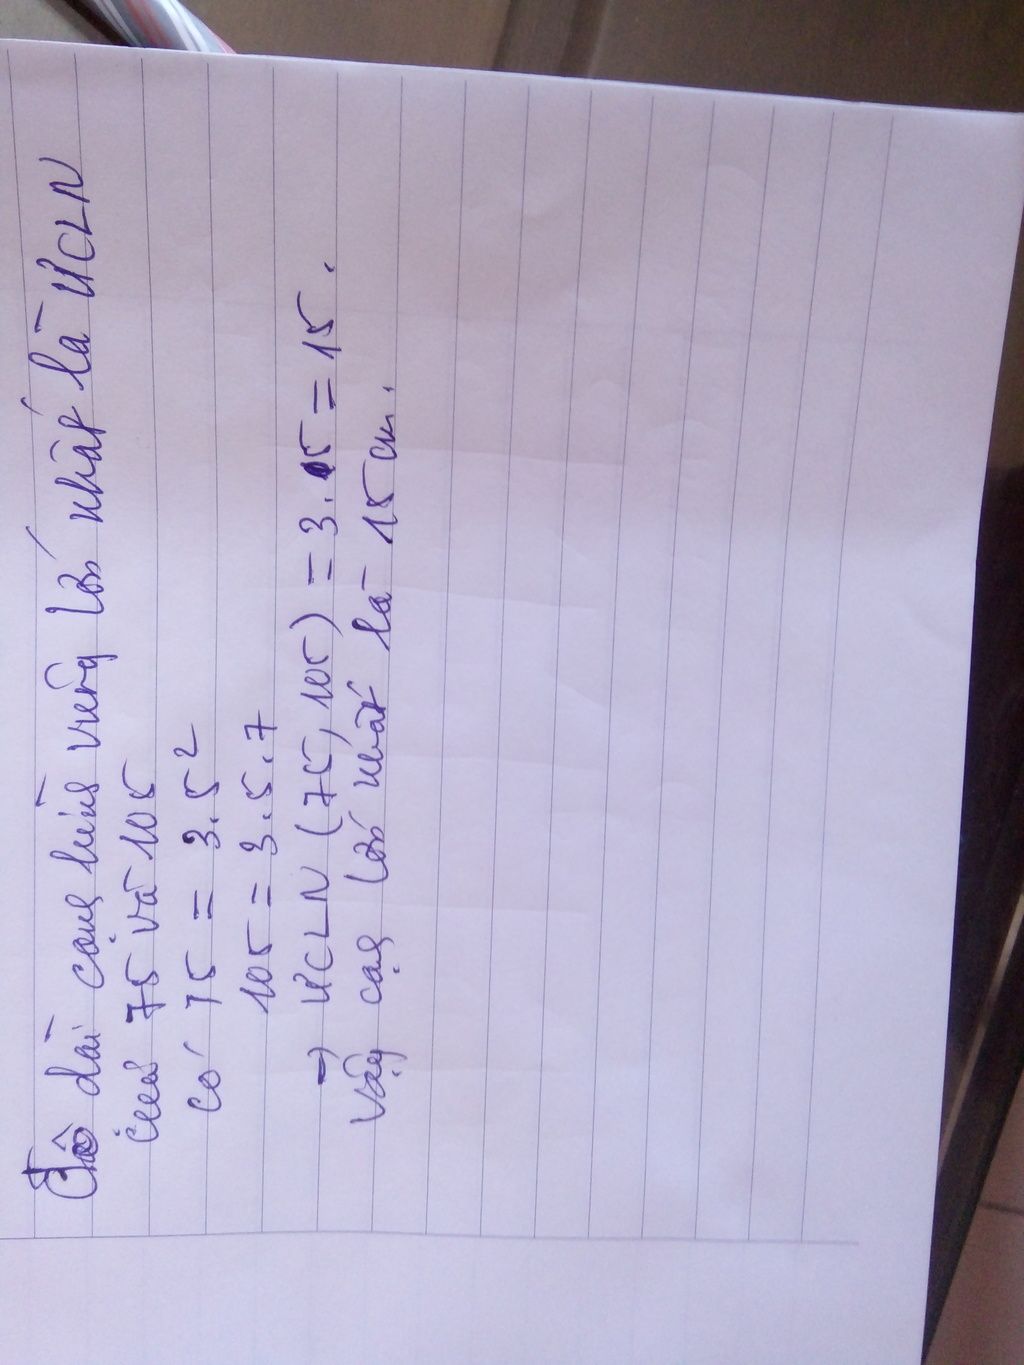 Độ dài cạng hình vuông lớn nhất là ƯCLN
của 75 và 105
Có 75 = 3.5²
105 = 3.5.7
=> ƯCLN (75, 105) = 3.5 = 15.
Vậy cạng lớn nhất là 15 cm.